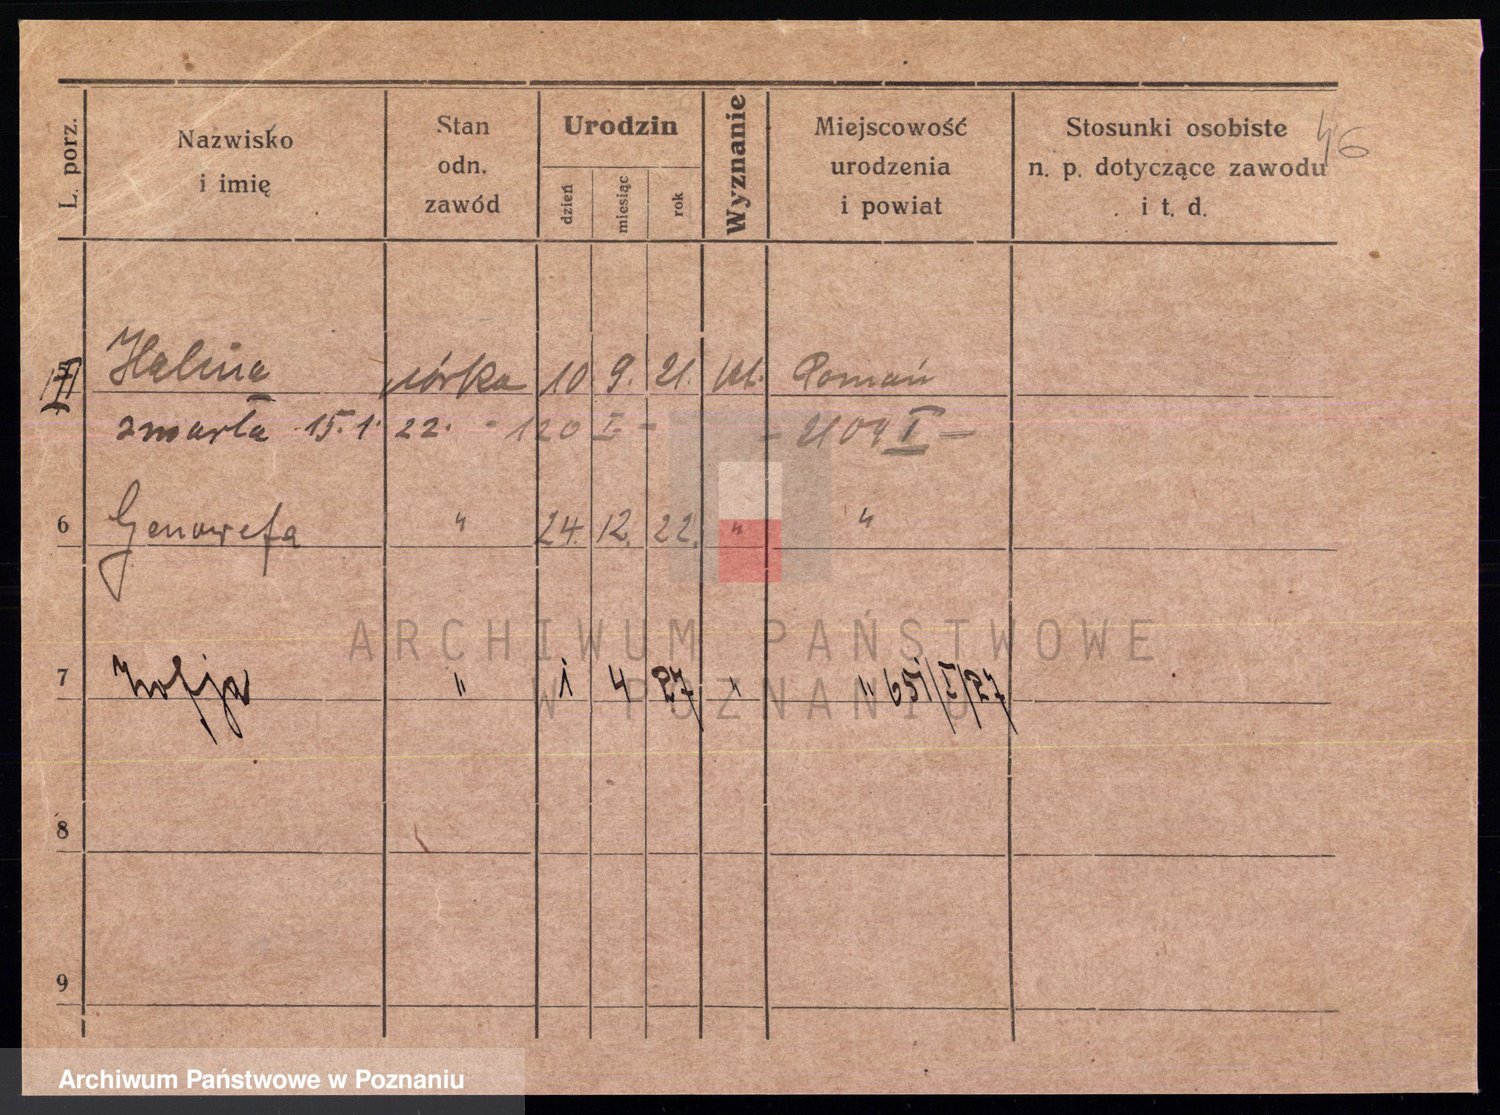 46
L. porz.
Nazwisko
i imię
Stan
odn.
zawód
Urodzin
dzień
miesiąc
rok
Wyznanie
Miejscowość
urodzenia
i powiat
Stosunki osobiste
n. p. dotyczące zawodu
i t. d.
Halina córka 10. 9. 21. kat. Poznań
zmarła 15. 1. 22. - 120 I - - 2109 I -
6 Genowefa " 24. 12. 22. " "
7 Zofja " 1 4 27 " " 651/I/27
8
9
ARCHIWUM PAŃSTWOWE
W POZNANIU
Archiwum Państwowe w Poznaniu